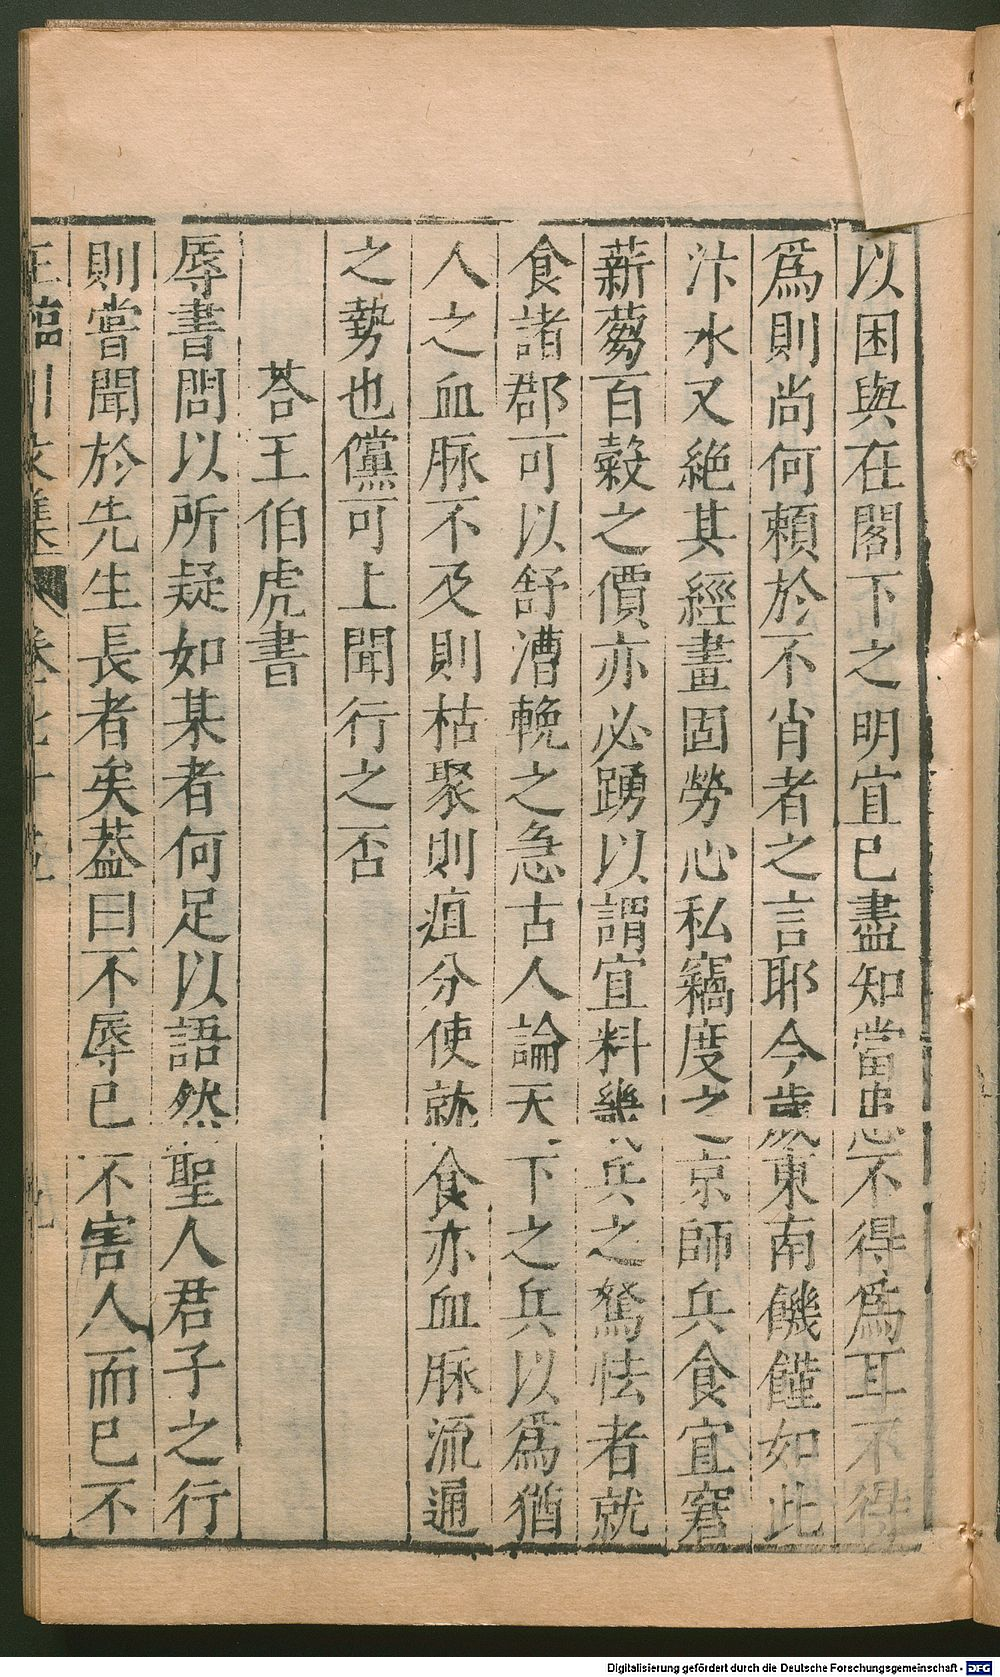 以困與在閣下之明宜已盡知當患不得爲耳不得
爲則尚何賴於不肖者之言耶今歲東南饑饉如此
汴水又絶其經畫固勞心私竊度之京師兵食宜窘
薪蒭百穀之價亦必踴以謂宜料兵之駑怯者就
食諸郡可以舒漕輓之急古人論天下之兵以爲猶
人之血脉不及則枯聚則疽分使就食亦血脉流通
之勢也儻可上聞行之否
荅王伯虎書
辱書問以所疑如某者何足以語然聖人君子之行
則嘗聞於先生長者矣葢曰不辱已不害人而已不
王臨川文集 卷七十五
Digitalisierung gefördert durch die Deutsche Forschungsgemeinschaft - DFG